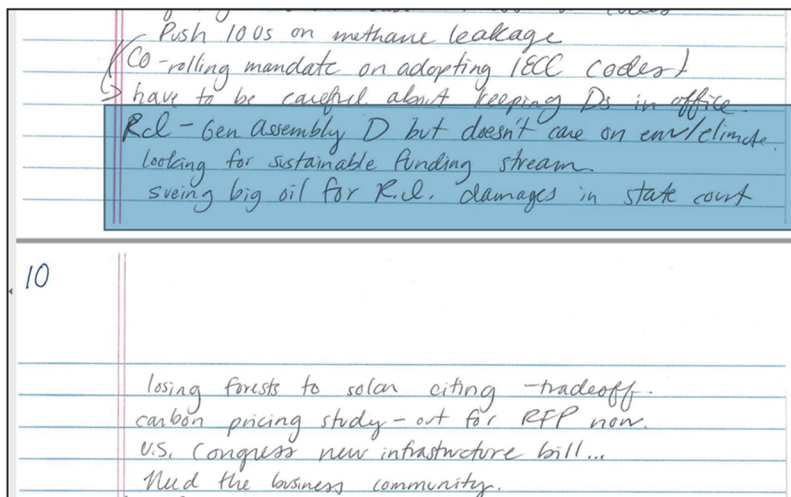 Push 10Us on methane leakage
CO-rolling mandate on adopting IECC codes
have to be careful about keeping Ds in office
R.I. - Gen Assembly D but doesn't care on env/climate.
looking for sustainable funding stream
sueing big oil for R.I. damages in state court
10
losing forests to solar citing - tradeoff.
carbon pricing study - out for RFP now.
U.S. Congress new infrastructure bill...
Need the business community.